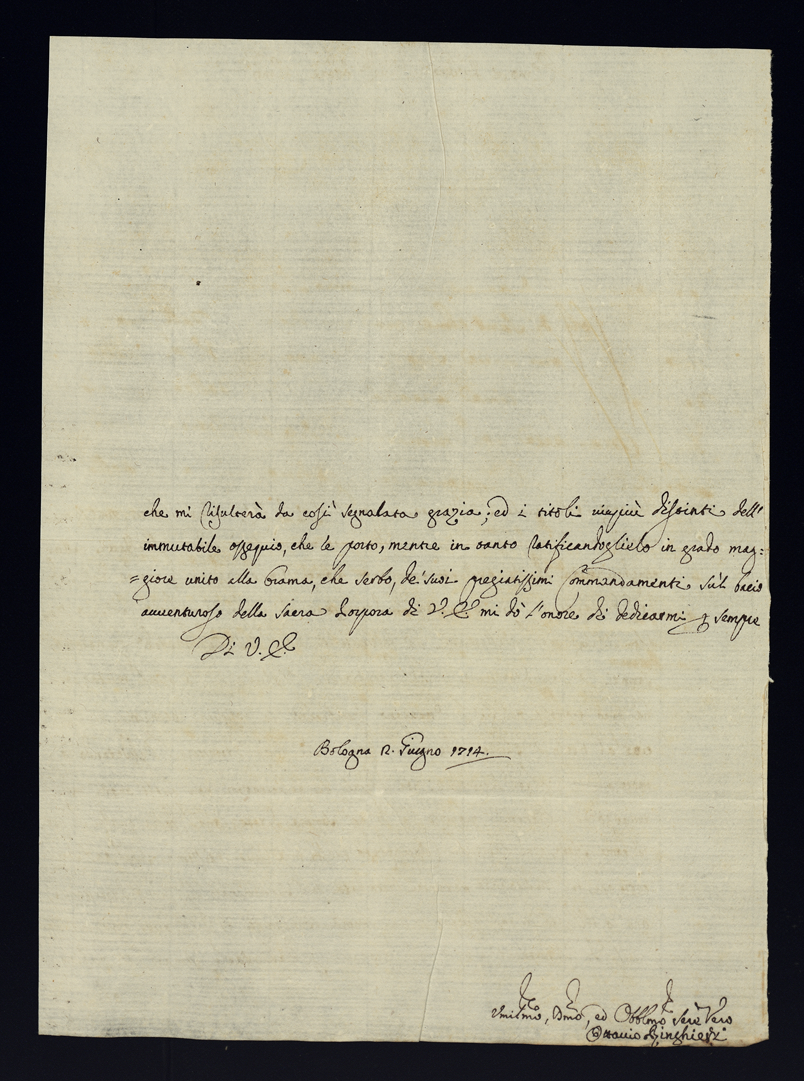 che mi risulterà da così segnalata grazia; ed i titoli viepiù distinti dell'
immutabile ossequio, che le porto, mentre in tanto ratificandoglielo in grado mag=
=giore unito alla brama, che serbo, de' suoi pregiatissimi Commandamenti sul bacio
avventuroso della Sacra Porpora di V. E. mi dò l'onore di dedicarmi p sempre
Di V. E.
Bologna 12. Giugno 1714.
Umilmo, Dmo, ed Obblmo Sere Vero
Ottavio